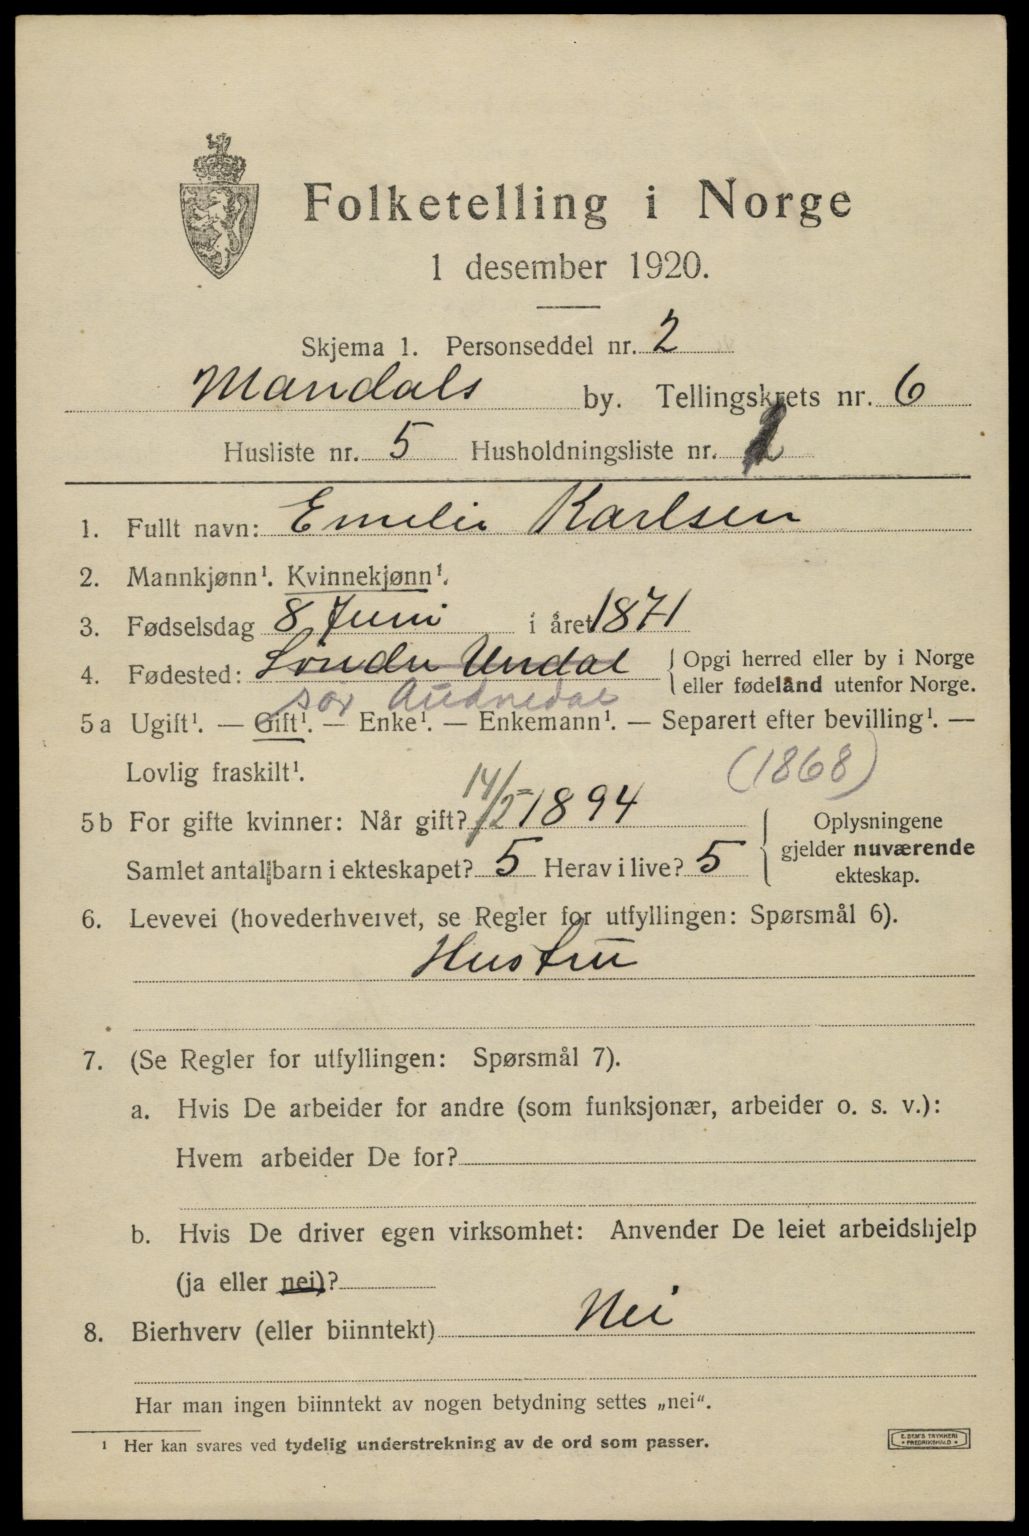 Folketelling i Norge
1 desember 1920.
Skjema 1. Personseddel nr. 2
Mandals by. Tellingskrets nr. 6
Husliste nr. 5 Husholdningsliste nr. 1
1. Fullt navn: Emelie Karlsen
2. Mannkjønn¹. Kvinnekjønn¹.
3. Fødselsdag 8 Juni i året 1871
4. Fødested: Søndre Undal { Opgi herred eller by i Norge
eller fødeland utenfor Norge.
Sør Audnedal
5a Ugift¹. — Gift¹. — Enke¹. — Enkemann¹. — Separert efter bevilling¹. —
Lovlig fraskilt¹. (1868)
5b For gifte kvinner: Når gift? 14/5 1894 { Oplysningene
gjelder nuværende
ekteskap.
Samlet antal barn i ekteskapet? 5 Herav i live? 5
6. Levevei (hovederhvervet, se Regler for utfyllingen: Spørsmål 6).
Hustru
7. (Se Regler for utfyllingen: Spørsmål 7).
a. Hvis De arbeider for andre (som funksjonær, arbeider o. s. v.):
Hvem arbeider De for?
b. Hvis De driver egen virksomhet: Anvender De leiet arbeidshjelp
(ja eller nei)?
8. Bierhverv (eller biinntekt) Nei
Har man ingen biinntekt av nogen betydning settes „nei".
¹ Her kan svares ved tydelig understrekning av de ord som passer.
E. SEM'S TRYKKERI
• FREDRIKSHALD •